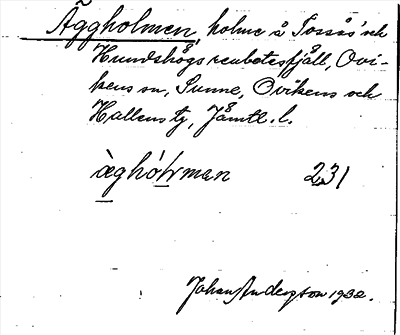 Äggholmen, holme å Torsås'och
Hundshögs renbetesfjäll, Ovi-
kens sn, Sunne, Ovikens och
Hallens tg, Jämtl. l.
àghól̲r̲man 231
Johan Anderson 1932.